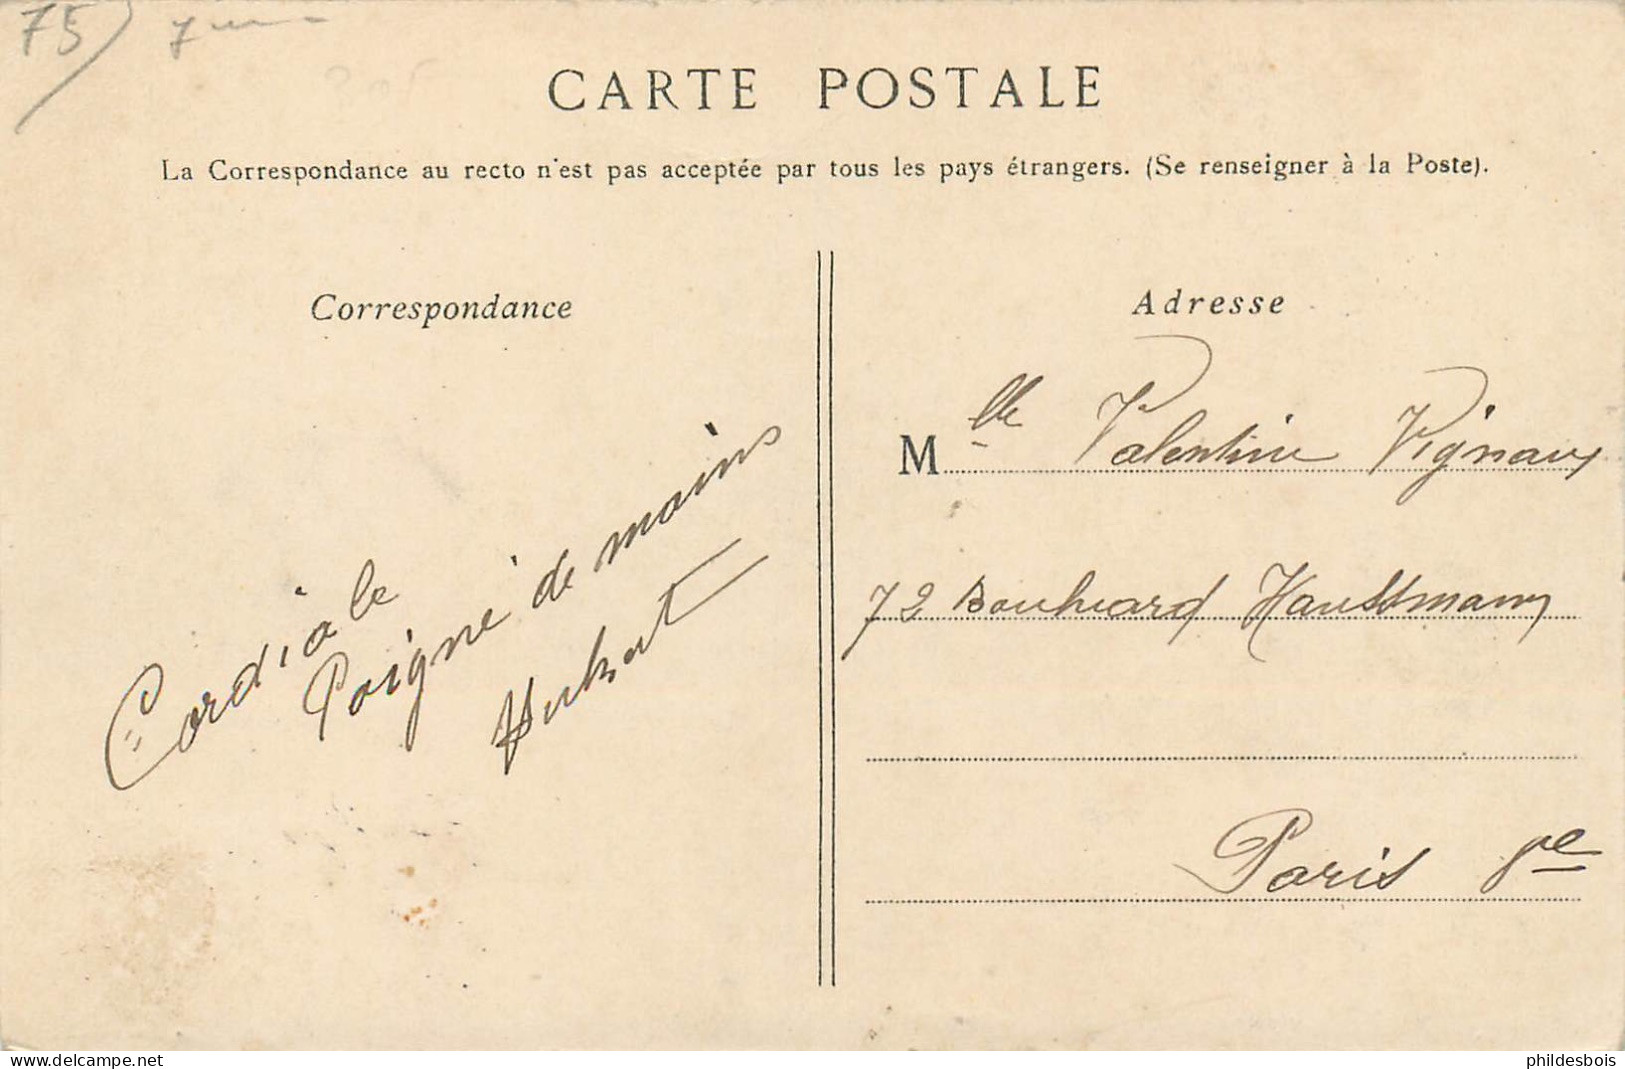 75 7
CARTE POSTALE
La Correspondance au recto n'est pas acceptée par tous les pays étrangers. (Se renseigner à la Poste).
Correspondance
Cordiale
Poigné de mains
Hubert
Adresse
Mlle Valentine Vignaux
72 Boulevard Haussmann
Paris 8e
www.delcampe.net
phildesbois